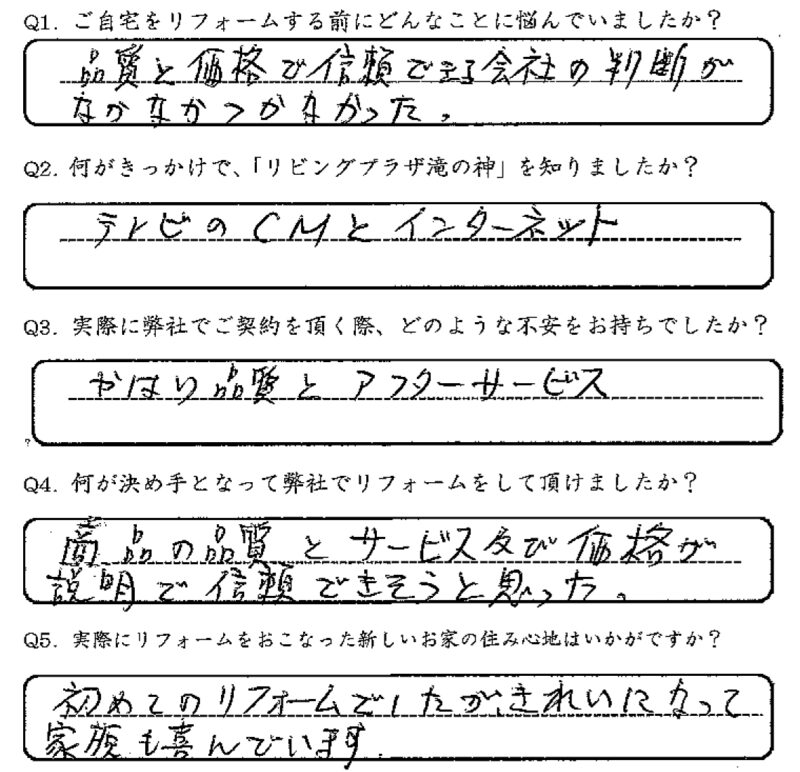 Q1. ご自宅をリフォームする前にどんなことに悩んでいましたか？
品質と価格で信頼できる会社の判断が
なかなかつかなかった。
Q2. 何がきっかけで、「リビングプラザ滝の神」を知りましたか？
テレビのCMとインターネット
Q3. 実際に弊社でご契約を頂く際、どのような不安をお持ちでしたか？
やはり品質とアフターサービス
Q4. 何が決め手となって弊社でリフォームをして頂けましたか？
商品の品質とサービス及び価格が
説明で信頼できそうと思った。
Q5. 実際にリフォームをおこなった新しいお家の住み心地はいかがですか？
初めてのリフォームでしたが、きれいになって
家族も喜んでいます。